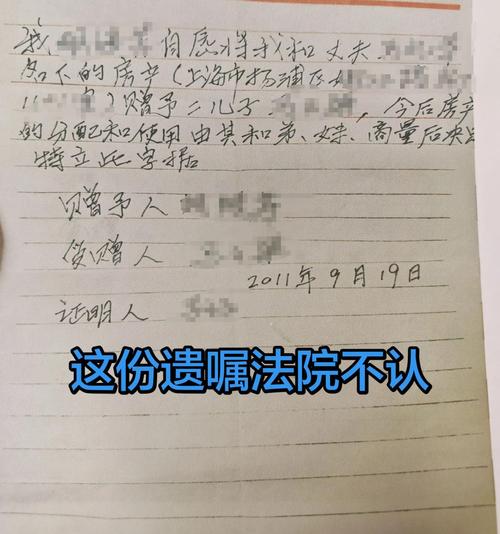 我 自愿将我和丈夫
名下的房产(上海市杨浦区
)赠予二儿子 ,今后房产
的分配和使用由其和弟、妹、商量后决定
特立此字据
赠予人
受赠人
2011年9月19日
证明人
这份遗嘱法院不认